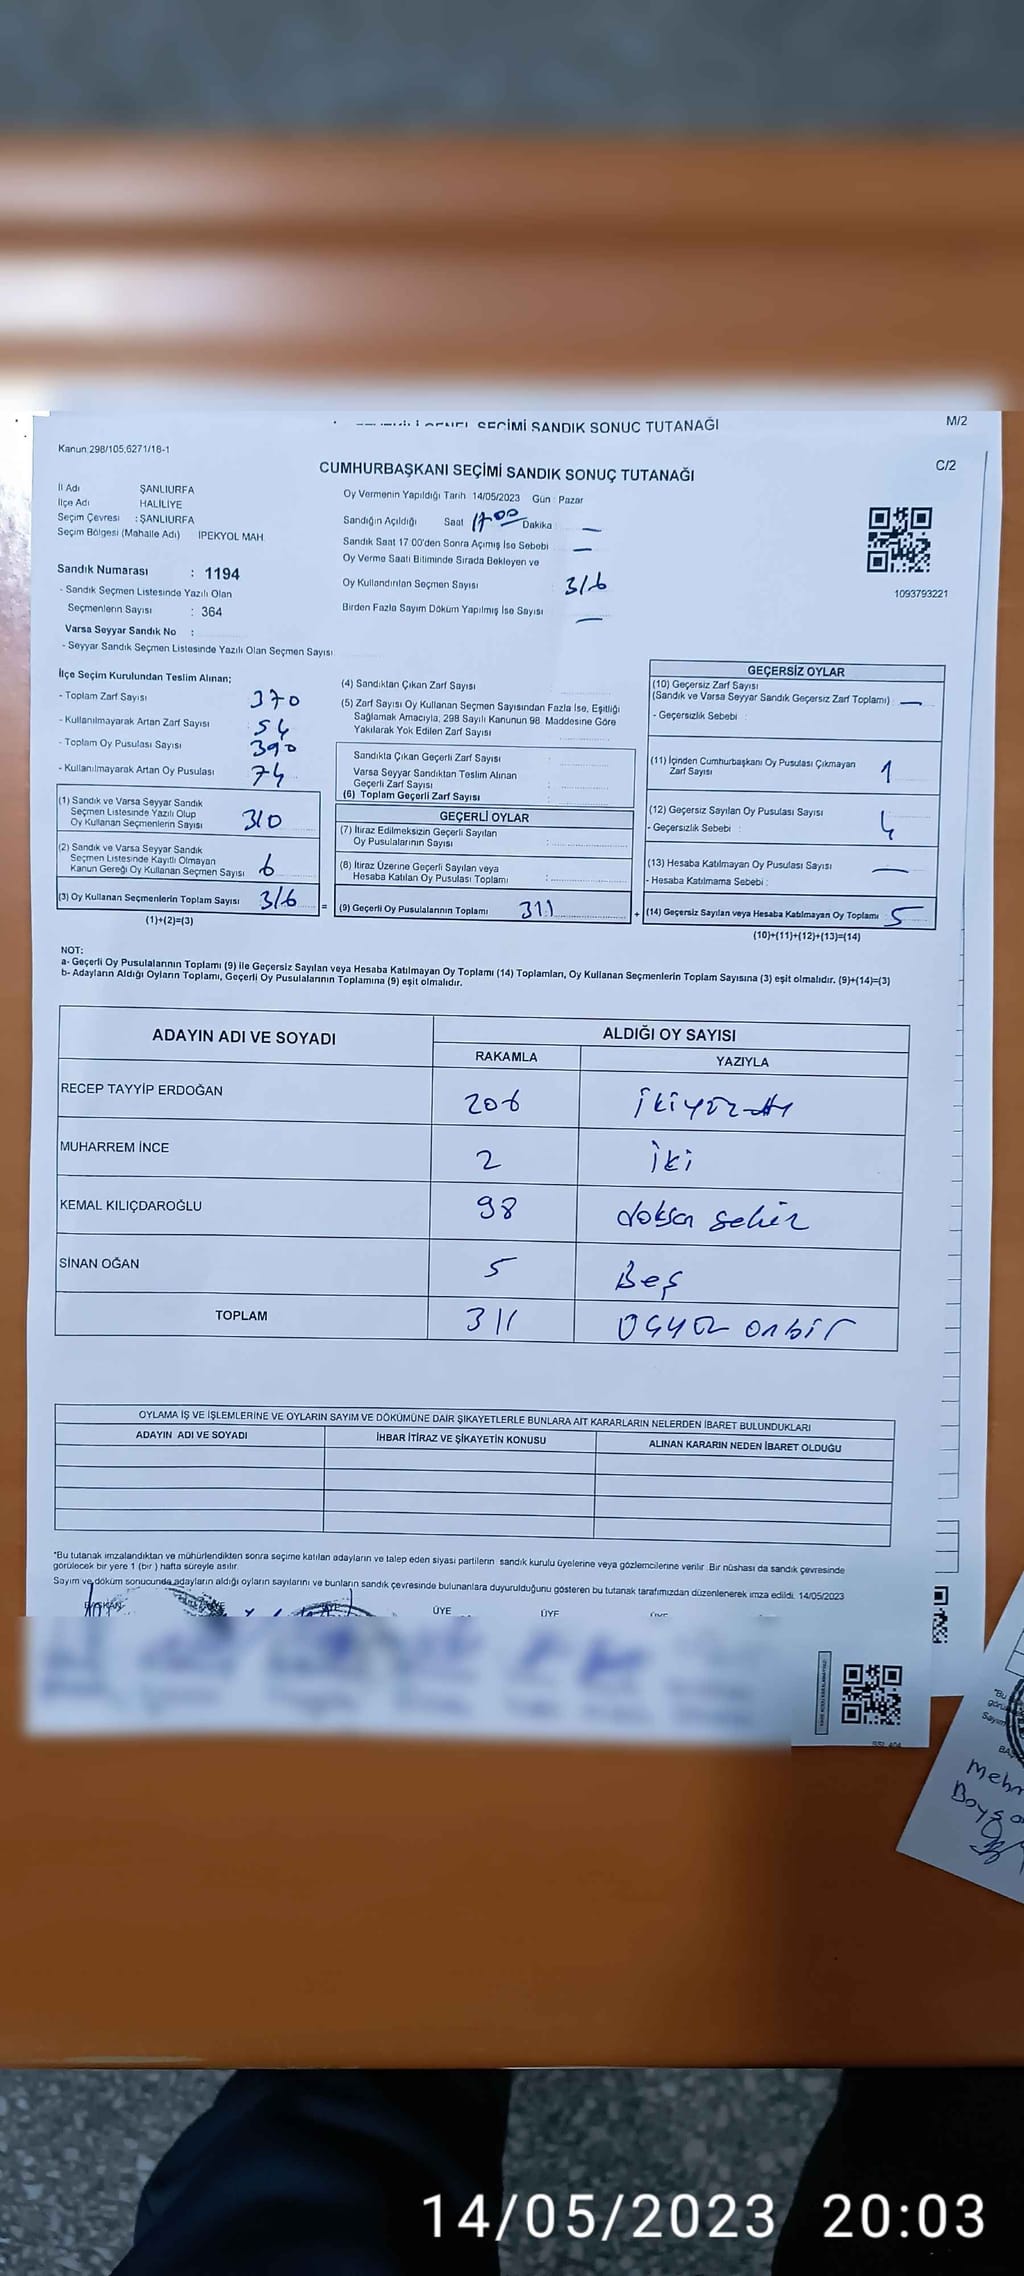 SEÇİMİ SANDIK SONUÇ TUTANAĞI
M/2
Kanun 298/105,6271/18-1
C/2
CUMHURBAŞKANI SEÇİMİ SANDIK SONUÇ TUTANAĞI
İl Adı ŞANLIURFA
İlçe Adı HALİLİYE
Seçim Çevresi : ŞANLIURFA
Seçim Bölgesi (Mahalle Adı) IPEKYOL MAH.
Oy Vermenin Yapıldığı Tarih 14/05/2023 Gün : Pazar
Sandığın Açıldığı Saat 17 00 Dakika : —
Sandık Saat 17 00'den Sonra Açımış İse Sebebi —
Oy Verme Saati Bitiminde Sırada Bekleyen ve
Oy Kullandırılan Seçmen Sayısı : 316
Birden Fazla Sayım Döküm Yapılmış İse Sayısı —
1093793221
Sandık Numarası : 1194
- Sandık Seçmen Listesinde Yazılı Olan
Seçmenlerin Sayısı : 364
Varsa Seyyar Sandık No :
- Seyyar Sandık Seçmen Listesinde Yazılı Olan Seçmen Sayısı
İlçe Seçim Kurulundan Teslim Alınan;
- Toplam Zarf Sayısı 370
- Kullanılmayarak Artan Zarf Sayısı 54
- Toplam Oy Pusulası Sayısı 390
- Kullanılmayarak Artan Oy Pusulası 74
(1) Sandık ve Varsa Seyyar Sandık
Seçmen Listesinde Yazılı Olup
Oy Kullanan Seçmenlerin Sayısı 310
(2) Sandık ve Varsa Seyyar Sandık
Seçmen Listesinde Kayıtlı Olmayan
Kanun Gereği Oy Kullanan Seçmen Sayısı 6
(3) Oy Kullanan Seçmenlerin Toplam Sayısı 316 =
(1)+(2)=(3)
(4) Sandıktan Çıkan Zarf Sayısı
(5) Zarf Sayısı Oy Kullanan Seçmen Sayısından Fazla İse, Eşitliği
Sağlamak Amacıyla, 298 Sayılı Kanunun 98. Maddesine Göre
Yakılarak Yok Edilen Zarf Sayısı
Sandıkta Çıkan Geçerli Zarf Sayısı
Varsa Seyyar Sandıktan Teslim Alınan
Geçerli Zarf Sayısı
(6) Toplam Geçerli Zarf Sayısı
GEÇERLİ OYLAR
(7) İtiraz Edilmeksizin Geçerli Sayılan
Oy Pusulalarının Sayısı :
(8) İtiraz Üzerine Geçerli Sayılan veya
Hesaba Katılan Oy Pusulası Toplamı :
(9) Geçerli Oy Pusulalarının Toplamı 311 +
GEÇERSİZ OYLAR
(10) Geçersiz Zarf Sayısı
(Sandık ve Varsa Seyyar Sandık Geçersiz Zarf Toplamı) : —
- Geçersizlik Sebebi :
(11) İçinden Cumhurbaşkanı Oy Pusulası Çıkmayan
Zarf Sayısı 1
(12) Geçersiz Sayılan Oy Pusulası Sayısı 4
- Geçersizlik Sebebi :
(13) Hesaba Katılmayan Oy Pusulası Sayısı —
- Hesaba Katılmama Sebebi :
(14) Geçersiz Sayılan veya Hesaba Katılmayan Oy Toplamı 5
(10)+(11)+(12)+(13)=(14)
NOT:
a- Geçerli Oy Pusulalarının Toplamı (9) ile Geçersiz Sayılan veya Hesaba Katılmayan Oy Toplamı (14) Toplamları, Oy Kullanan Seçmenlerin Toplam Sayısına (3) eşit olmalıdır. (9)+(14)=(3)
b- Adayların Aldığı Oyların Toplamı, Geçerli Oy Pusulalarının Toplamına (9) eşit olmalıdır.
ADAYIN ADI VE SOYADI ALDIĞI OY SAYISI
RAKAMLA YAZIYLA
RECEP TAYYİP ERDOĞAN 206 ikiyüz altı
MUHARREM İNCE 2 iki
KEMAL KILIÇDAROĞLU 98 doksan sekiz
SİNAN OĞAN 5 Beş
TOPLAM 311 Üçyüz onbir
OYLAMA İŞ VE İŞLEMLERİNE VE OYLARIN SAYIM VE DÖKÜMÜNE DAİR ŞİKAYETLERLE BUNLARA AIT KARARLARIN NELERDEN İBARET BULUNDUKLARI
ADAYIN ADI VE SOYADI İHBAR İTİRAZ VE ŞİKAYETİN KONUSU ALINAN KARARIN NEDEN İBARET OLDUĞU
*Bu tutanak imzalandıktan ve mühürlendikten sonra seçime katılan adayların ve talep eden siyasi partilerin sandık kurulu üyelerine veya gözlemcilerine verilir. Bir nüshası da sandık çevresinde
görülecek bir yere 1 (bir) hafta süreyle asılır.
Sayım ve döküm sonucunda adayların aldığı oyların sayılarını ve bunların sandık çevresinde bulunanlara duyurulduğunu gösteren bu tutanak tarafımızdan düzenlenerek imza edildi. 14/05/2023
BAŞKAN ÜYE ÜYE
*Bu
Sayım
14/05/2023 20:03